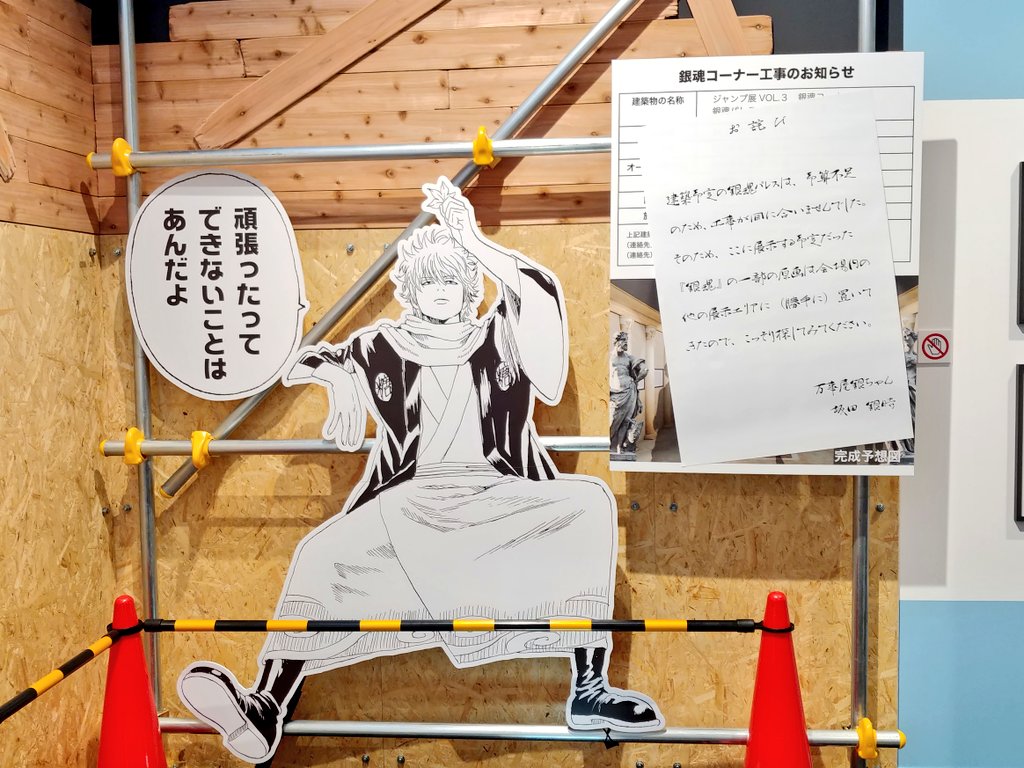 頑張ったって
できないことは
あんだよ
銀魂コーナー工事のお知らせ
建築物の名称
ジャンプ展 VOL.3 銀魂コ
お詫び
建築予定の銀魂パレスは、予算不足
のため、工事が間に合いませんでした。
そのため、ここに展示する予定だった
『銀魂』の一部の原画は会場内の
他の展示エリアに(勝手に)置いて
きたので、こっそり探してみてください。
万事屋銀ちゃん
坂田 銀時
オー
上記建
(連絡先
(連絡先)
完成予想図